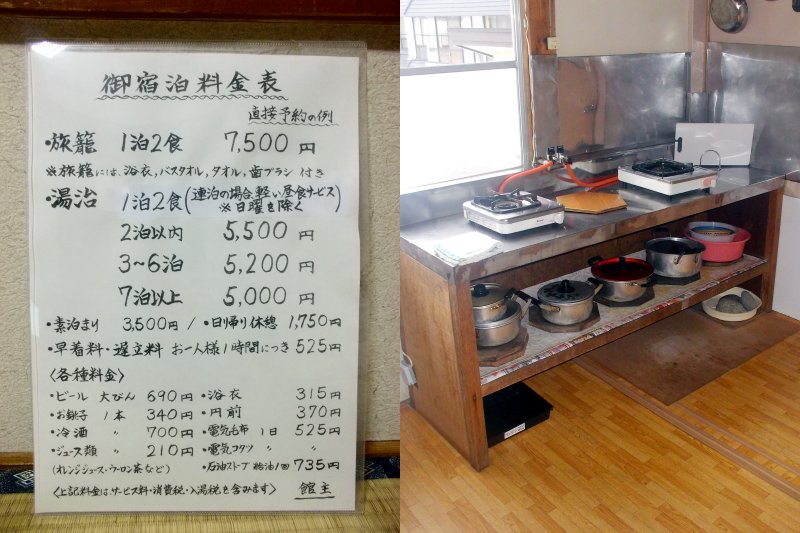 御宿泊料金表
直接予約の例
・旅籠 1泊2食 7,500円
※旅籠には、浴衣、バスタオル、タオル、歯ブラシ付き
・湯治 1泊2食(連泊の場合、軽い昼食サービス
※日曜を除く)
2泊以内 5,500円
3~6泊 5,200円
7泊以上 5,000円
・素泊まり 3,500円 / ・日帰り休憩 1,750円
・早着料・遅立料 お一人様1時間につき 525円
〈各種料金〉
・ビール 大びん 690円 ・浴衣 315円
・お銚子 1本 340円 ・丹前 370円
・冷酒 〃 700円 ・電気毛布 1日 525円
・ジュース類 〃 210円 ・電気コタツ 〃 〃
(オレンジジュース・ウーロン茶など) ・石油ストーブ 給油1回 735円
〈上記料金は、サービス料・消費税・入湯税を含みます〉 館主